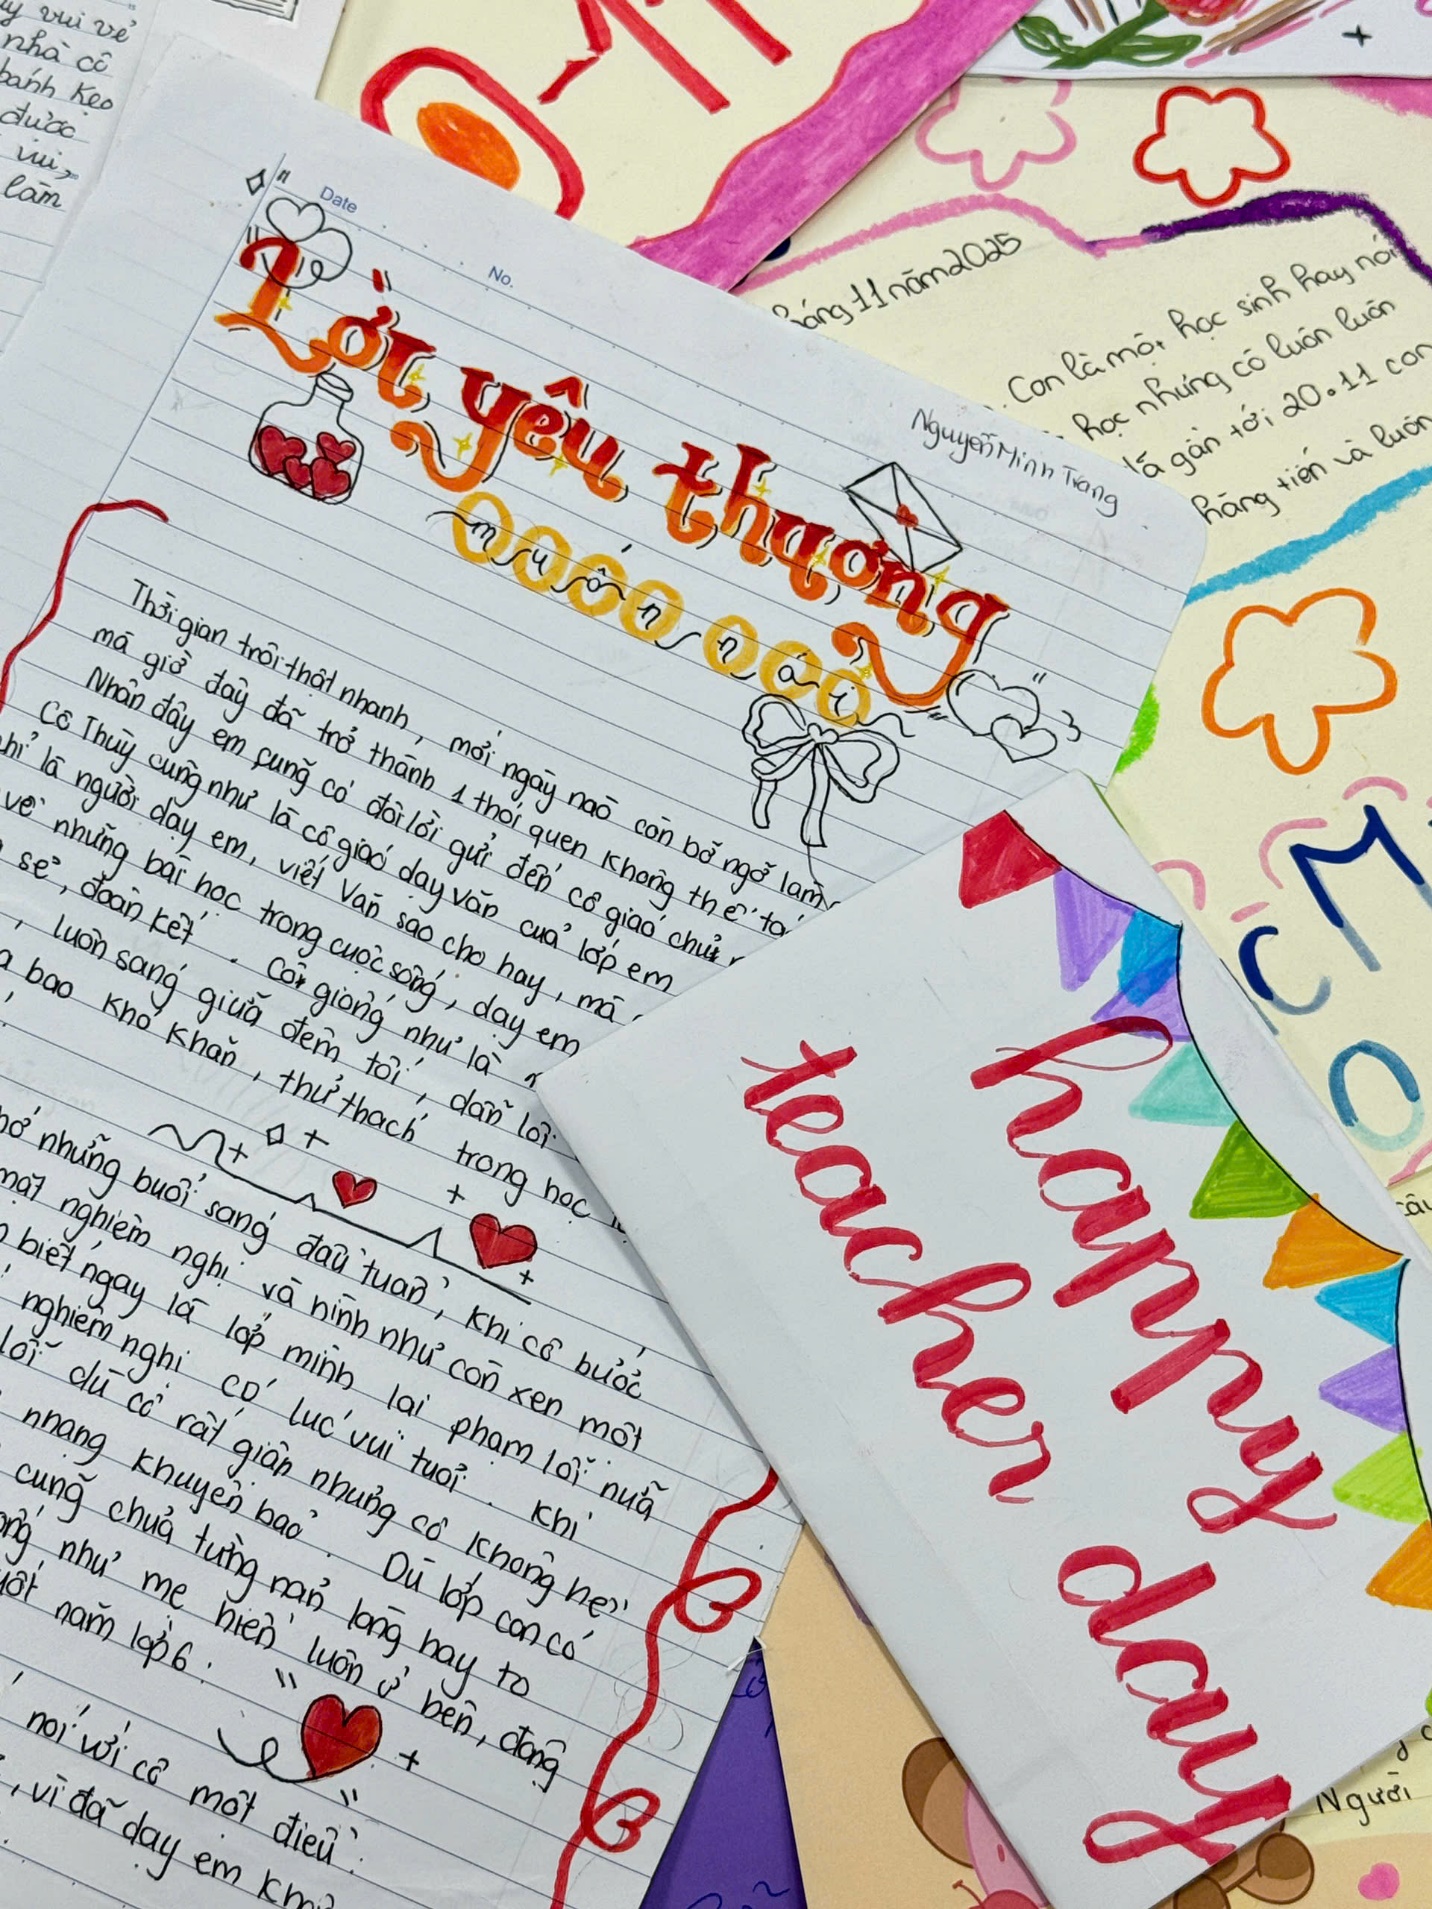 y vui vẻ
nhà cô
bánh kẹo
được
vui,
làm
0-11
Date
No.
Lời yêu thương
muốn nói
Nguyễn Minh Trang
Thời gian trôi thật nhanh, mới ngày nào còn bỡ ngỡ làm
mà giờ đây đã trở thành 1 thói quen không thể
Nhân đây em cũng có đôi lời gửi đến cô giáo chủ
Cô Thùy cũng như là cô giáo dạy văn của lớp em
là người dạy em, viết Văn sao cho hay, mà
về những bài học trong cuộc sống, dạy em
sẻ, đoàn kết. Cô giống như là
, luôn sáng giữa đêm tối, dẫn lối
bao khó khăn, thử thách trong học
những buổi sáng đầu tuần, khi cô bước
mặt nghiêm nghị và hình như còn xen một
biết ngay là lớp mình lại phạm lỗi nữa
nghiêm nghị có lúc vui tươi. Khi
lỗi dù cô rất giận nhưng cô không hề
nhàng khuyên bảo. Dù lớp con có
cũng chưa từng nản lòng hay to
như mẹ hiền luôn ở bên, động
năm lớp 6.
nói với cô một điều:
, vì đã dạy em
tháng 11 năm 2025
Con là một học sinh hay nói
học nhưng cô luôn luôn
gần tới 20.11 con
và luôn
happy
teacher
day
Người